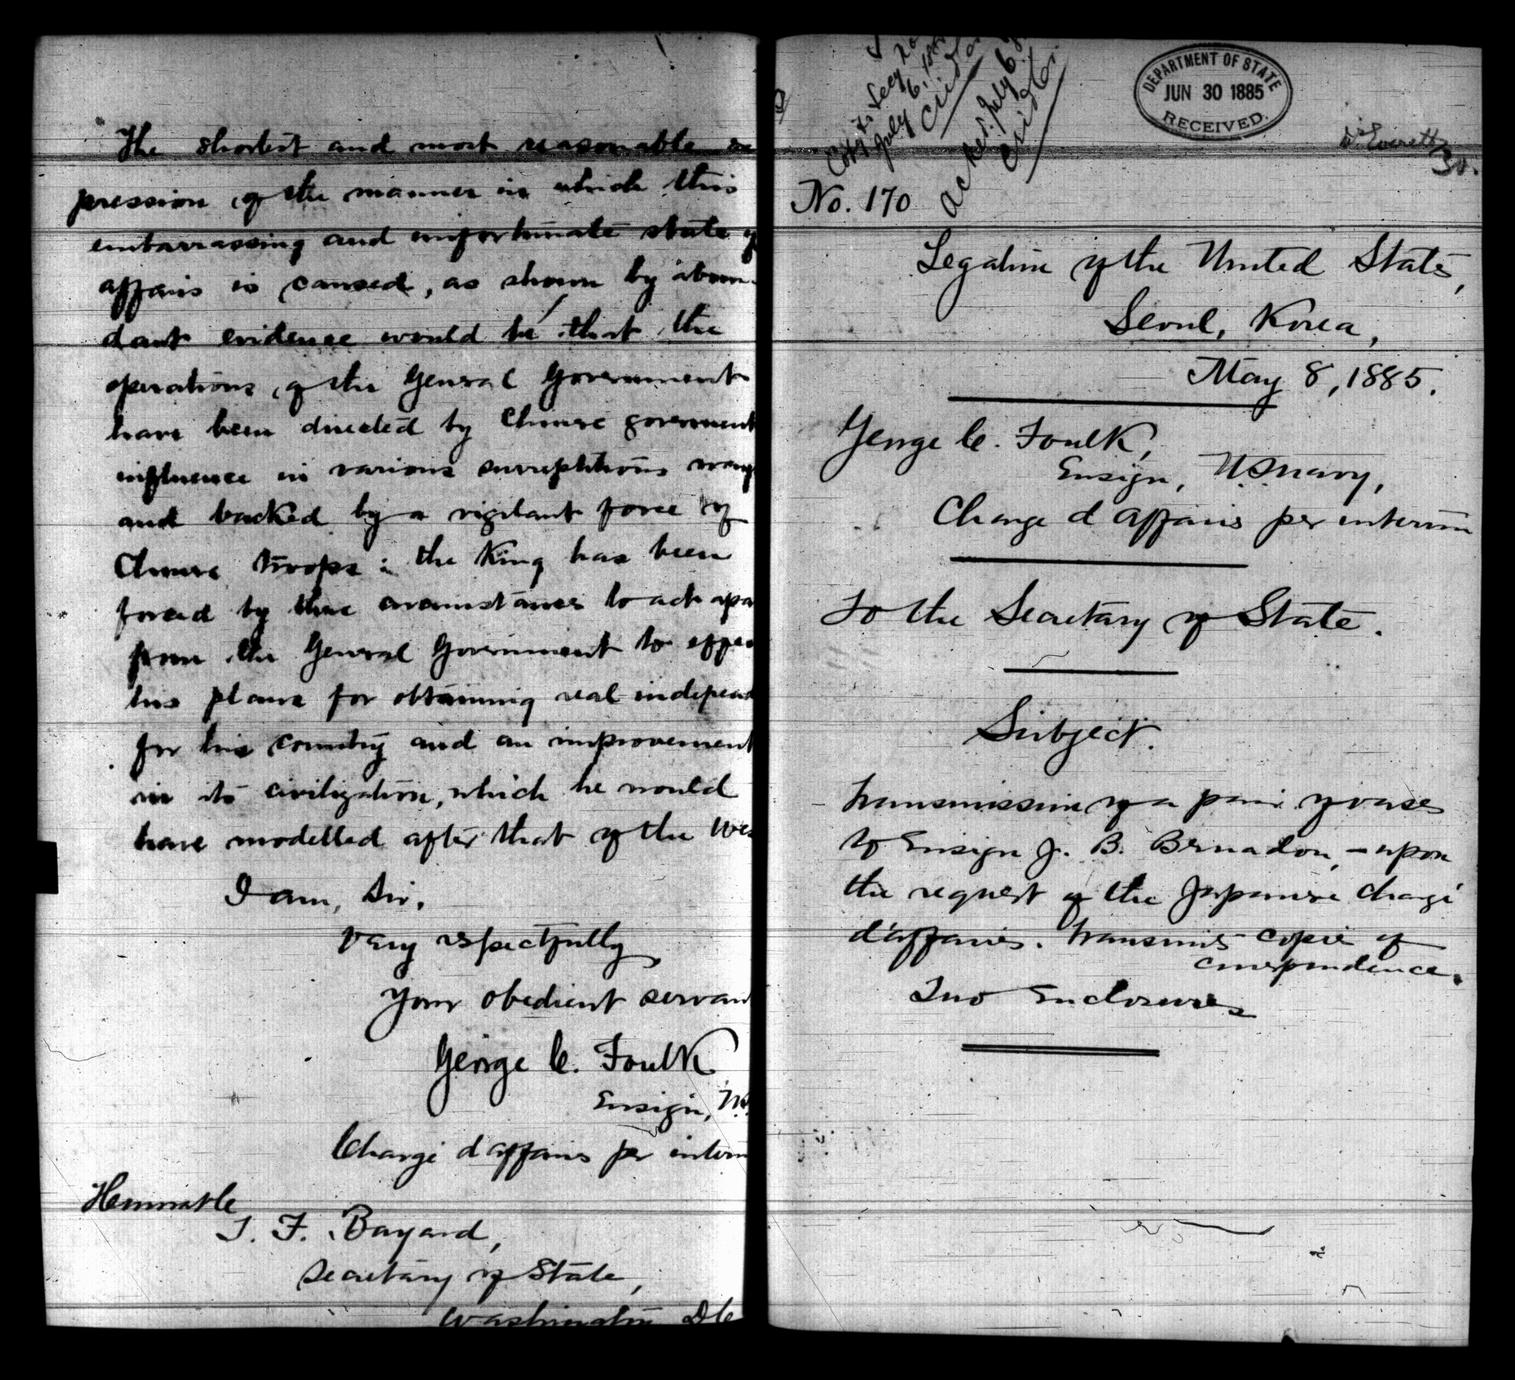 The shortest and most reasonable ex
pression of the manner in which this
embarrassing and unfortunate state of
affairs is caused, as shown by abun-
dant evidence would be that the
operations of the General Government
have been directed by Chinese government
influence in various surreptitious ways
and backed by a vigilant force of
Chinese troops; the King has been
forced by these circumstances to act apa
from the General Government to effec
his plans for obtaining real independ
for his country and an improvement
in its civilization, which he would
have modelled after that of the Wes
I am, Sir,
Very respectfully
Your obedient servan
George C. Foulk
Ensign, U.S.
Chargé d'affaires per interim
Honorable
T. F. Bayard,
Secretary of State,
Washington D.C
Copy to Secy
July 6, 188
Cridler
Ackd. July 6
Cridler
DEPARTMENT OF STATE
JUN 30 1885
RECEIVED.
No. 170
Legation of the United States,
Seoul, Korea,
May 8, 1885.
George C. Foulk,
Ensign, U.S. Navy,
Chargé d'affaires per interim
To the Secretary of State.
Subject.
Transmission of a pair of vases
to Ensign J. B. Bernadou, - upon
the request of the Japanese chargé
d'affaires. Transmits copies of
correspondence.
Two Enclosures